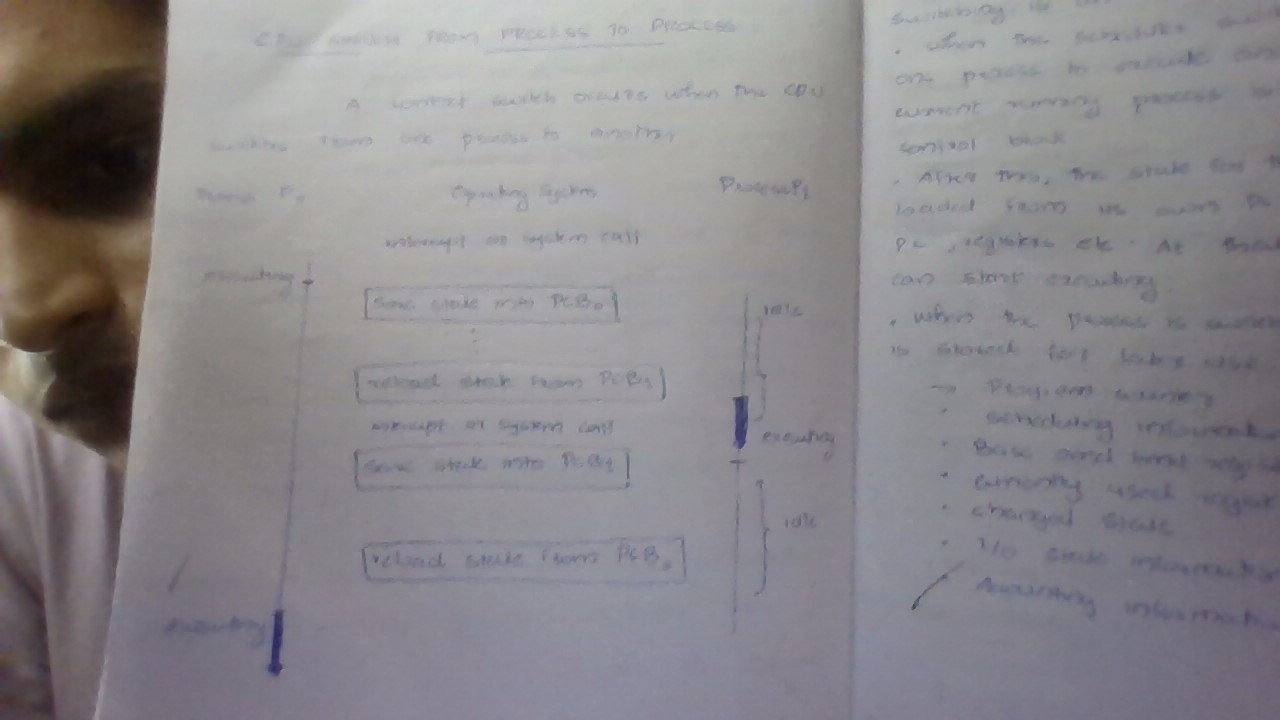 CPU SWITCH FROM PROCESS TO PROCESS
A context switch occurs when the CPU
switches from one process to another
Process P0
Operating System
Process P1
interrupt or system call
executing
save state into PCB0
idle
reload state from PCB1
interrupt or system call
executing
save state into PCB1
idle
reload state from PCB0
executing
switching is
. when the scheduler
one process to execute
current running process is
control block
. After this, the state for
loaded from its own
PC, registers etc. At
can start executing
. when the process is
is stored for later use.
→ Program counter
. scheduling information
. Base and
. currently used
. changed state
. I/O state information
Accounting information